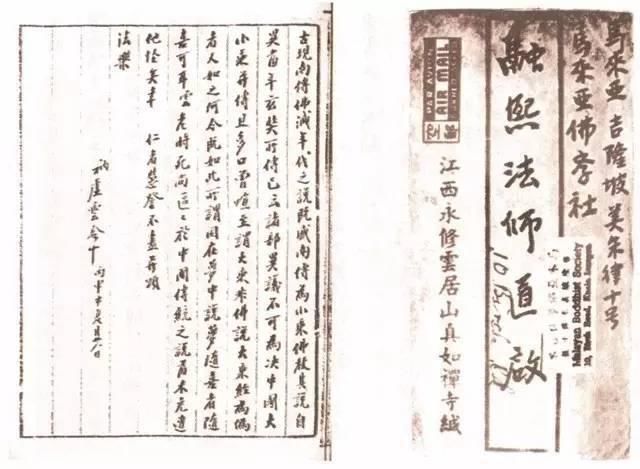 古現南傳佛滅年代之說既成南傳為小乘佛教其說自
異所傳已言諸部異議不可為決中國大
小乘并傳且多口曾喧至謂大乘非佛說大乘經為偽
者人如之何今既如此可謂因在夢中說夢隨喜者隨
喜可耳雲老將死尚區區於中國傳統之說未免
他怪矣幸 仁者慧 不盡并頌
法樂
衲虛雲合十 丙申年月日
馬來亞 吉隆坡 美年律十号
馬來亞佛學社
Malayan Buddhist Society
Road, Kuala Lumpur
融熙法師道啟
PAR AVION
AIR MAIL
航空
江西永修雲居山真如禪寺緘